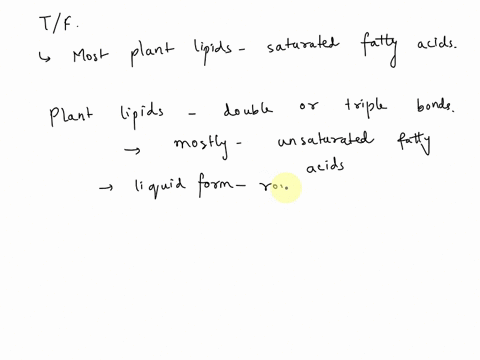 T/F.
↳ Most plant lipids - saturated fatty acids.
Plant lipids - double or triple bonds.
→ mostly - unsaturated fatty acids
→ liquid form -